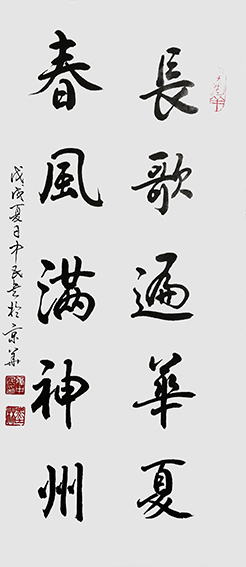 長歌遍華夏
春風满神州
戊戌夏日中民书於京華